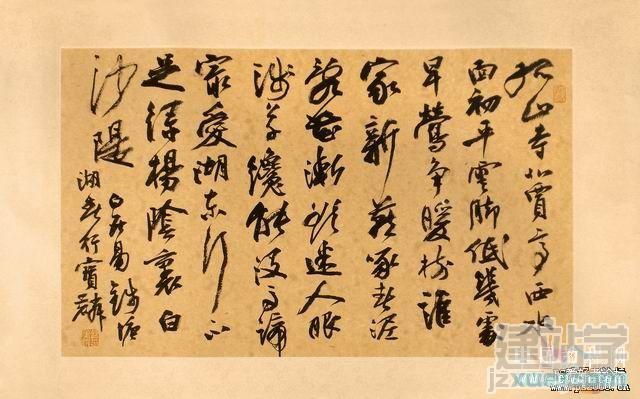 孤山寺北賈亭西水
面初平雲脚低幾處
早鶯争暖樹誰
家新燕啄春泥
亂花漸欲迷人眼
浅草纔能没馬蹄
最愛湖東行不
足綠楊陰裏白
沙隄
白居易錢塘
湖春行寶麟
建站学